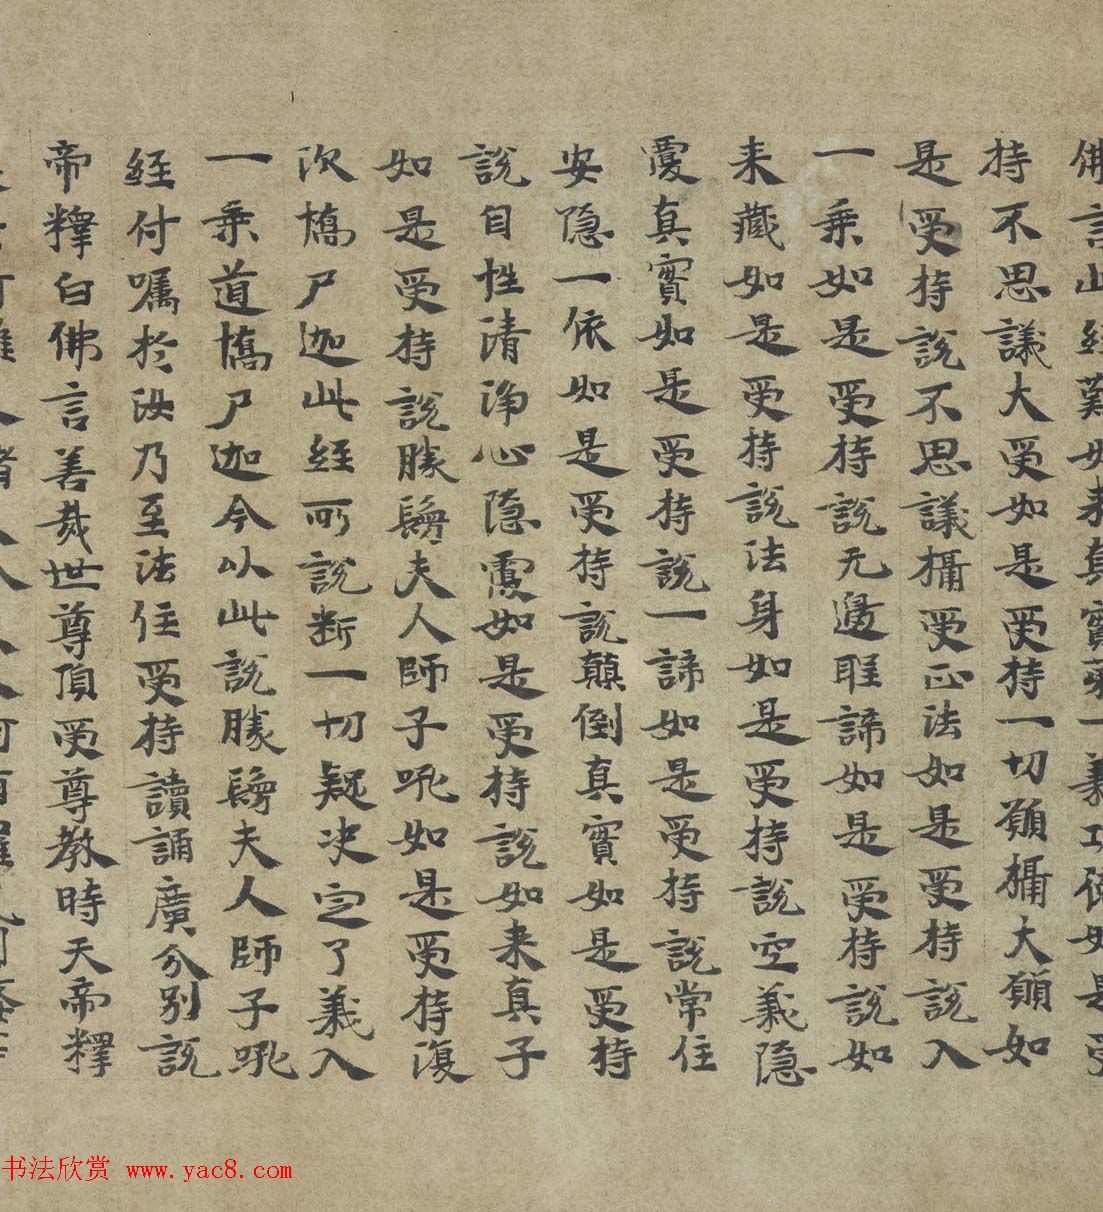 佛言此經歎如来真實第一義功德如是受
持不思議大受如是受持一切願攝大願如
是受持說不思議攝受正法如是受持說入
一乘如是受持說无邊聖諦如是受持說如
来藏如是受持說法身如是受持說空義隱
覆真實如是受持說一諦如是受持說常住
安隱一依如是受持說顛倒真實如是受持
說自性清淨心隱覆如是受持說如来真子
如是受持說勝鬘夫人師子吼如是受持復
次憍尸迦此經所說断一切疑决定了義入
一乘道憍尸迦今以此說勝鬘夫人師子吼
經付囑於汝乃至法住受持讀誦廣分別說
帝釋白佛言善哉世尊頂受尊教時天帝釋
书法欣赏 www.yac8.com